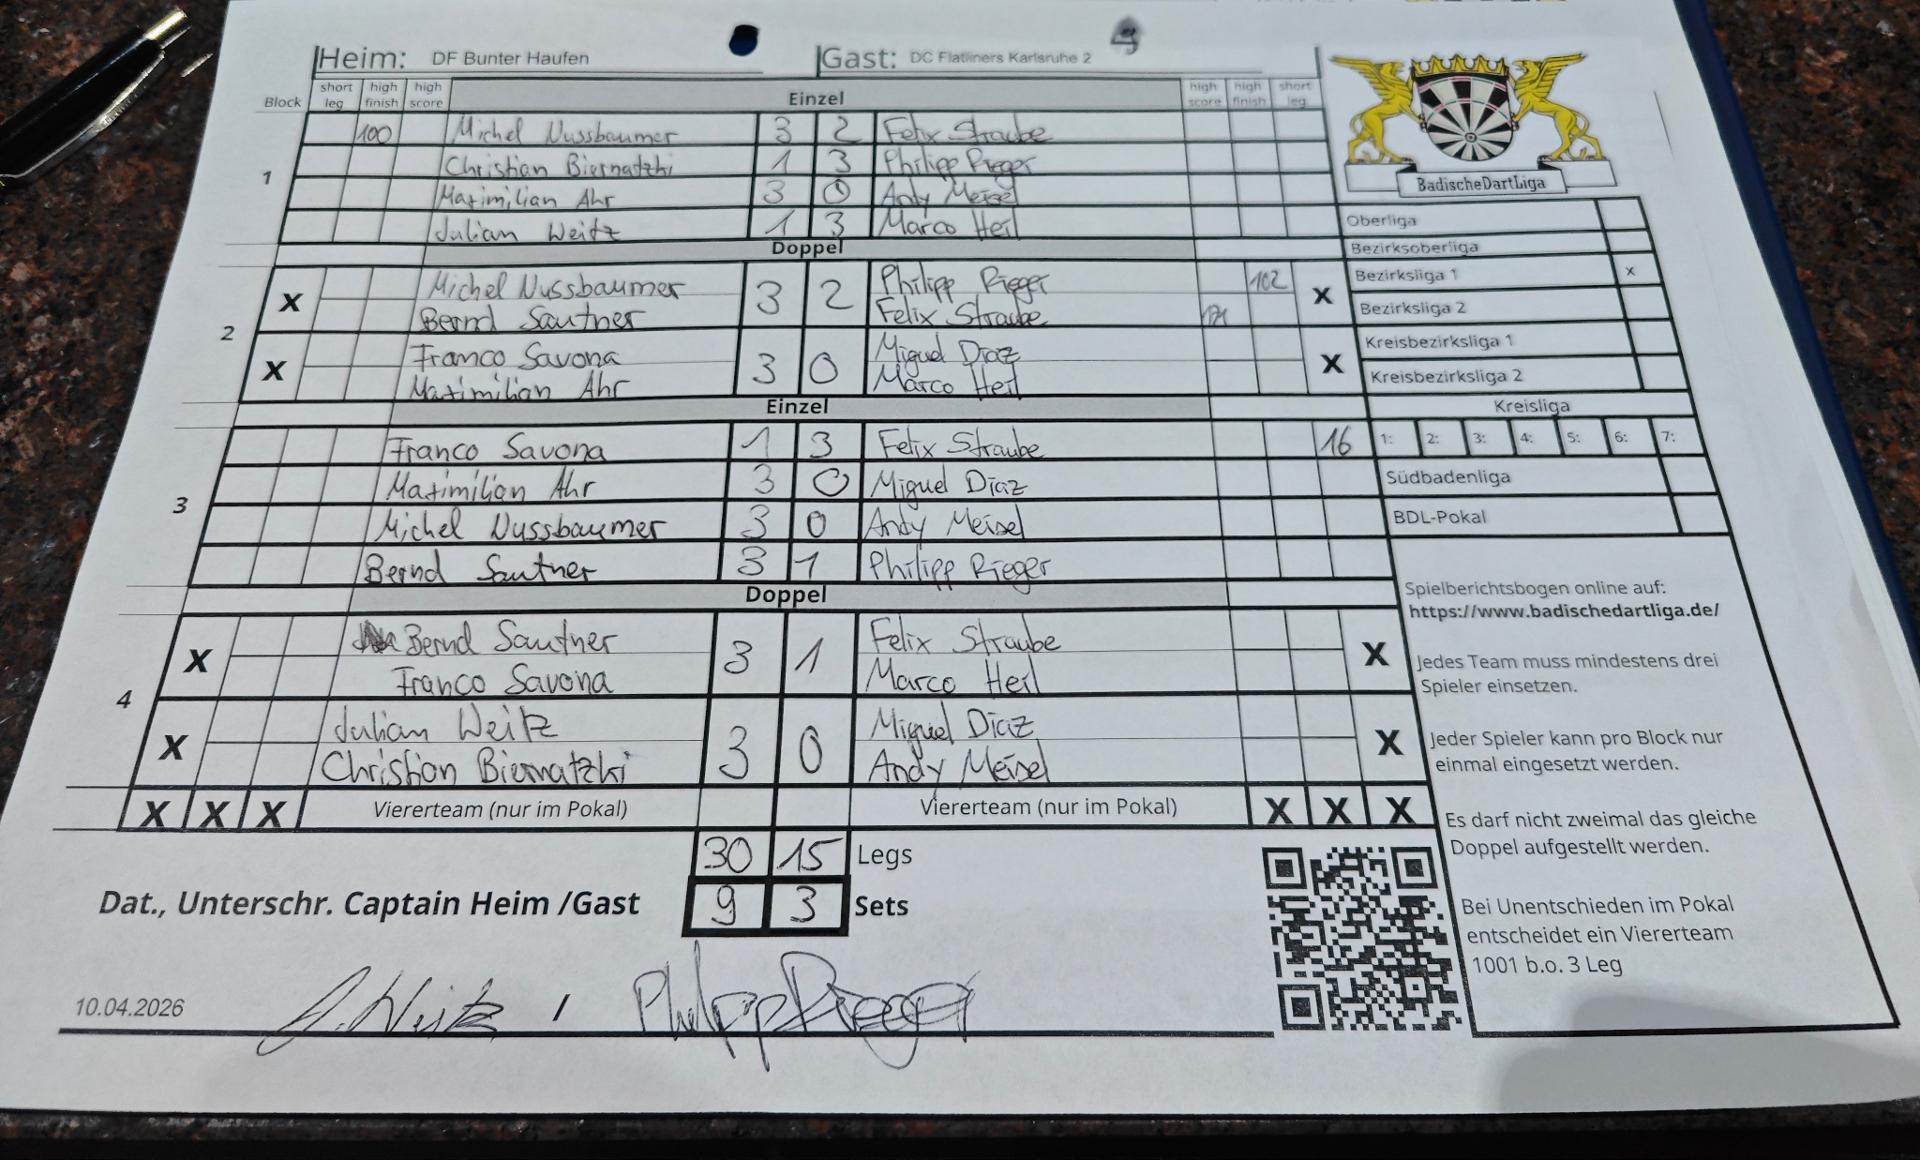 Heim: DF Bunter Haufen Gast: DC Flatliners Karlsruhe 2
Block short leg high finish high score Einzel high score high finish short leg
1
100 Michel Nussbaumer 3 2 Felix Straube
Christian Biernatzki 1 3 Philipp Rieger
Maximilian Ahr 3 0 Andy Meisel
Julian Weitz 1 3 Marco Heil
Doppel
2
X Michel Nussbaumer 3 2 Philipp Rieger 102 X
Bernd Sautner Felix Straube 171
X Franco Savona 3 0 Miguel Diaz X
Maximilian Ahr Marco Heil
Einzel
3
Franco Savona 1 3 Felix Straube 16
Maximilian Ahr 3 0 Miguel Diaz
Michel Nussbaumer 3 0 Andy Meisel
Bernd Sautner 3 1 Philipp Rieger
Doppel
4
X Bernd Sautner 3 1 Felix Straube X
Franco Savona Marco Heil
X Julian Weitz 3 0 Miguel Diaz X
Christian Biernatzki Andy Meisel
X X X Viererteam (nur im Pokal) Viererteam (nur im Pokal) X X X
30 15 Legs
Dat., Unterschr. Captain Heim /Gast 9 3 Sets
10.04.2026 J. Weitz / Philipp Rieger
BadischeDartLiga
Oberliga
Bezirksoberliga
Bezirksliga 1 x
Bezirksliga 2
Kreisbezirksliga 1
Kreisbezirksliga 2
Kreisliga
1: 2: 3: 4: 5: 6: 7:
Südbadenliga
BDL-Pokal
Spielberichtsbogen online auf:
https://www.badischedartliga.de/
Jedes Team muss mindestens drei
Spieler einsetzen.
Jeder Spieler kann pro Block nur
einmal eingesetzt werden.
Es darf nicht zweimal das gleiche
Doppel aufgestellt werden.
Bei Unentschieden im Pokal
entscheidet ein Viererteam
1001 b.o. 3 Leg